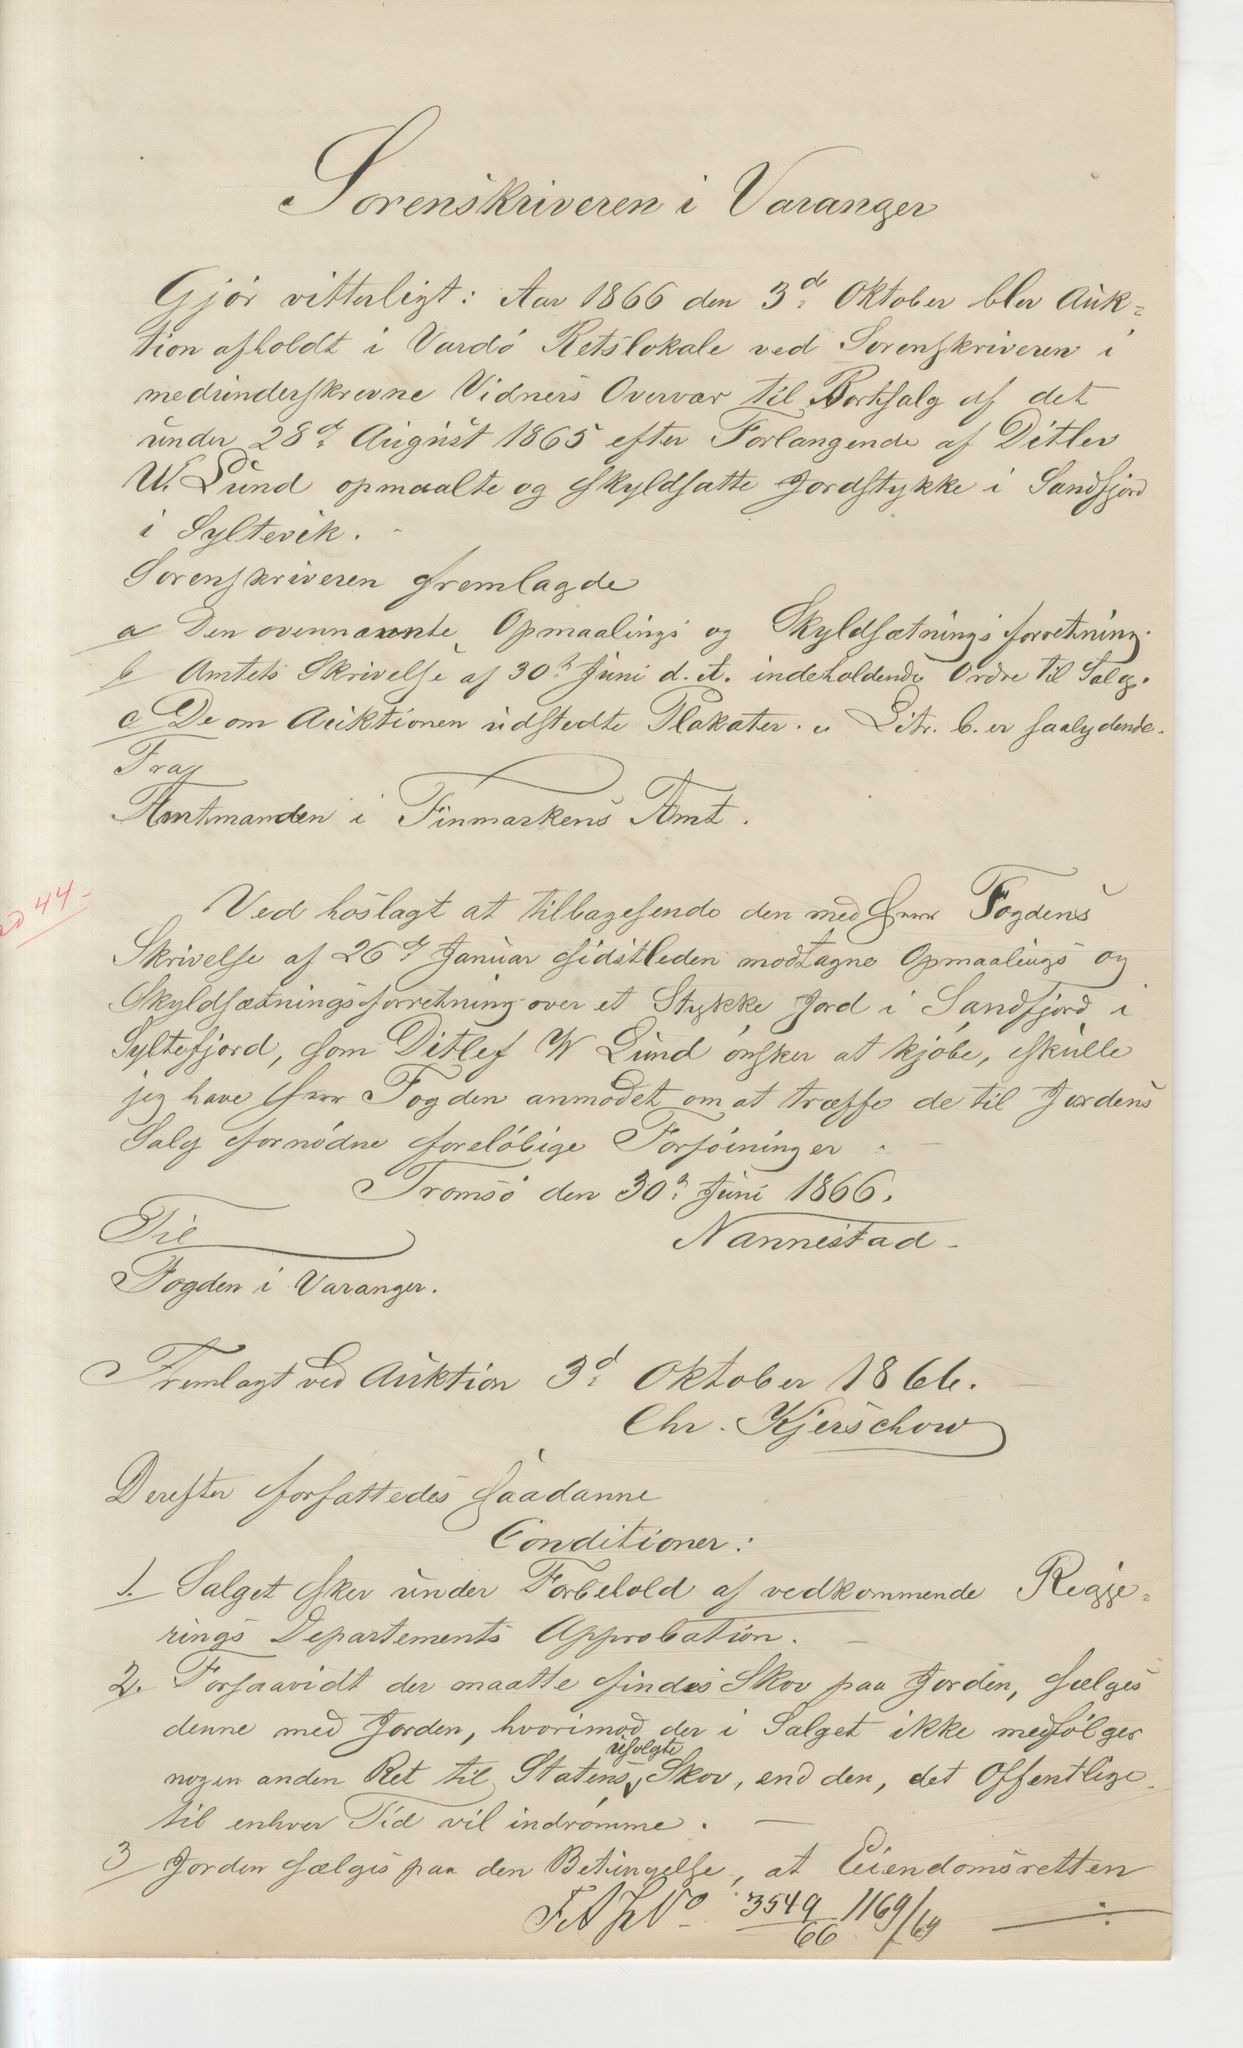 Sorenskriveren i Varanger
Gjör vitterligt: Aar 1866 den 3d Oktober blev Auk=
tion afholdt i Vardö Retslokale ved Sorenskriveren i
medunderskrevne Vidners Overvær til Bortsalg af det
under 28d August 1865 efter Forlangende af Ditlev
W. Lund opmaalte og skyldsatte Jordstykke i Sandfjord
i Syltevik.
Sorenskriveren fremlagde
a Den ovennævnte Opmaalings og Skyldsætningsforretning.
b Amtets Skrivelse af 30te Juni d. A. indeholdende Ordre til Salg.
c De om Auktionen udstedte Plakater. Litr. b. er saalydende.
Fra
Amtmanden i Finmarkens Amt.
44
Ved hoslagt at tilbagesende den med Herr Fogdens
Skrivelse af 26de Januar sidstleden modtagne Opmaalings og
Skyldsætningsforretning over et Stykke Jord i Sandfjord i
Syltefjord, som Ditlef W Lund önsker at kjöbe, skulle
jeg have Herr Fogden anmodet om at træffe de til Jordens
Salg fornödne forelöbige Forföininger.
Tromsö den 30te Juni 1866.
Nannestad
Til
Fogden i Varanger.
Fremlagt ved Auktion 3d Oktober 1866.
Chr. Kjerschow
Derefter forfattedes saadanne
Conditioner:
1. Salget sker under Forbehold af vedkommende Regje=
rings Departements Approbation.
2. Forsaavidt der maatte findes Skov paa Jorden, sælges
denne med Jorden, hvorimod der i Salget ikke medfölger
usolgte
nogen anden Ret til Statens Skov, end den, det Offentlige
til enhver Tid vil indrömme.
3 Jorden sælges paa den Betingelse, at Eiendomsretten
No 3549/66 1169/69